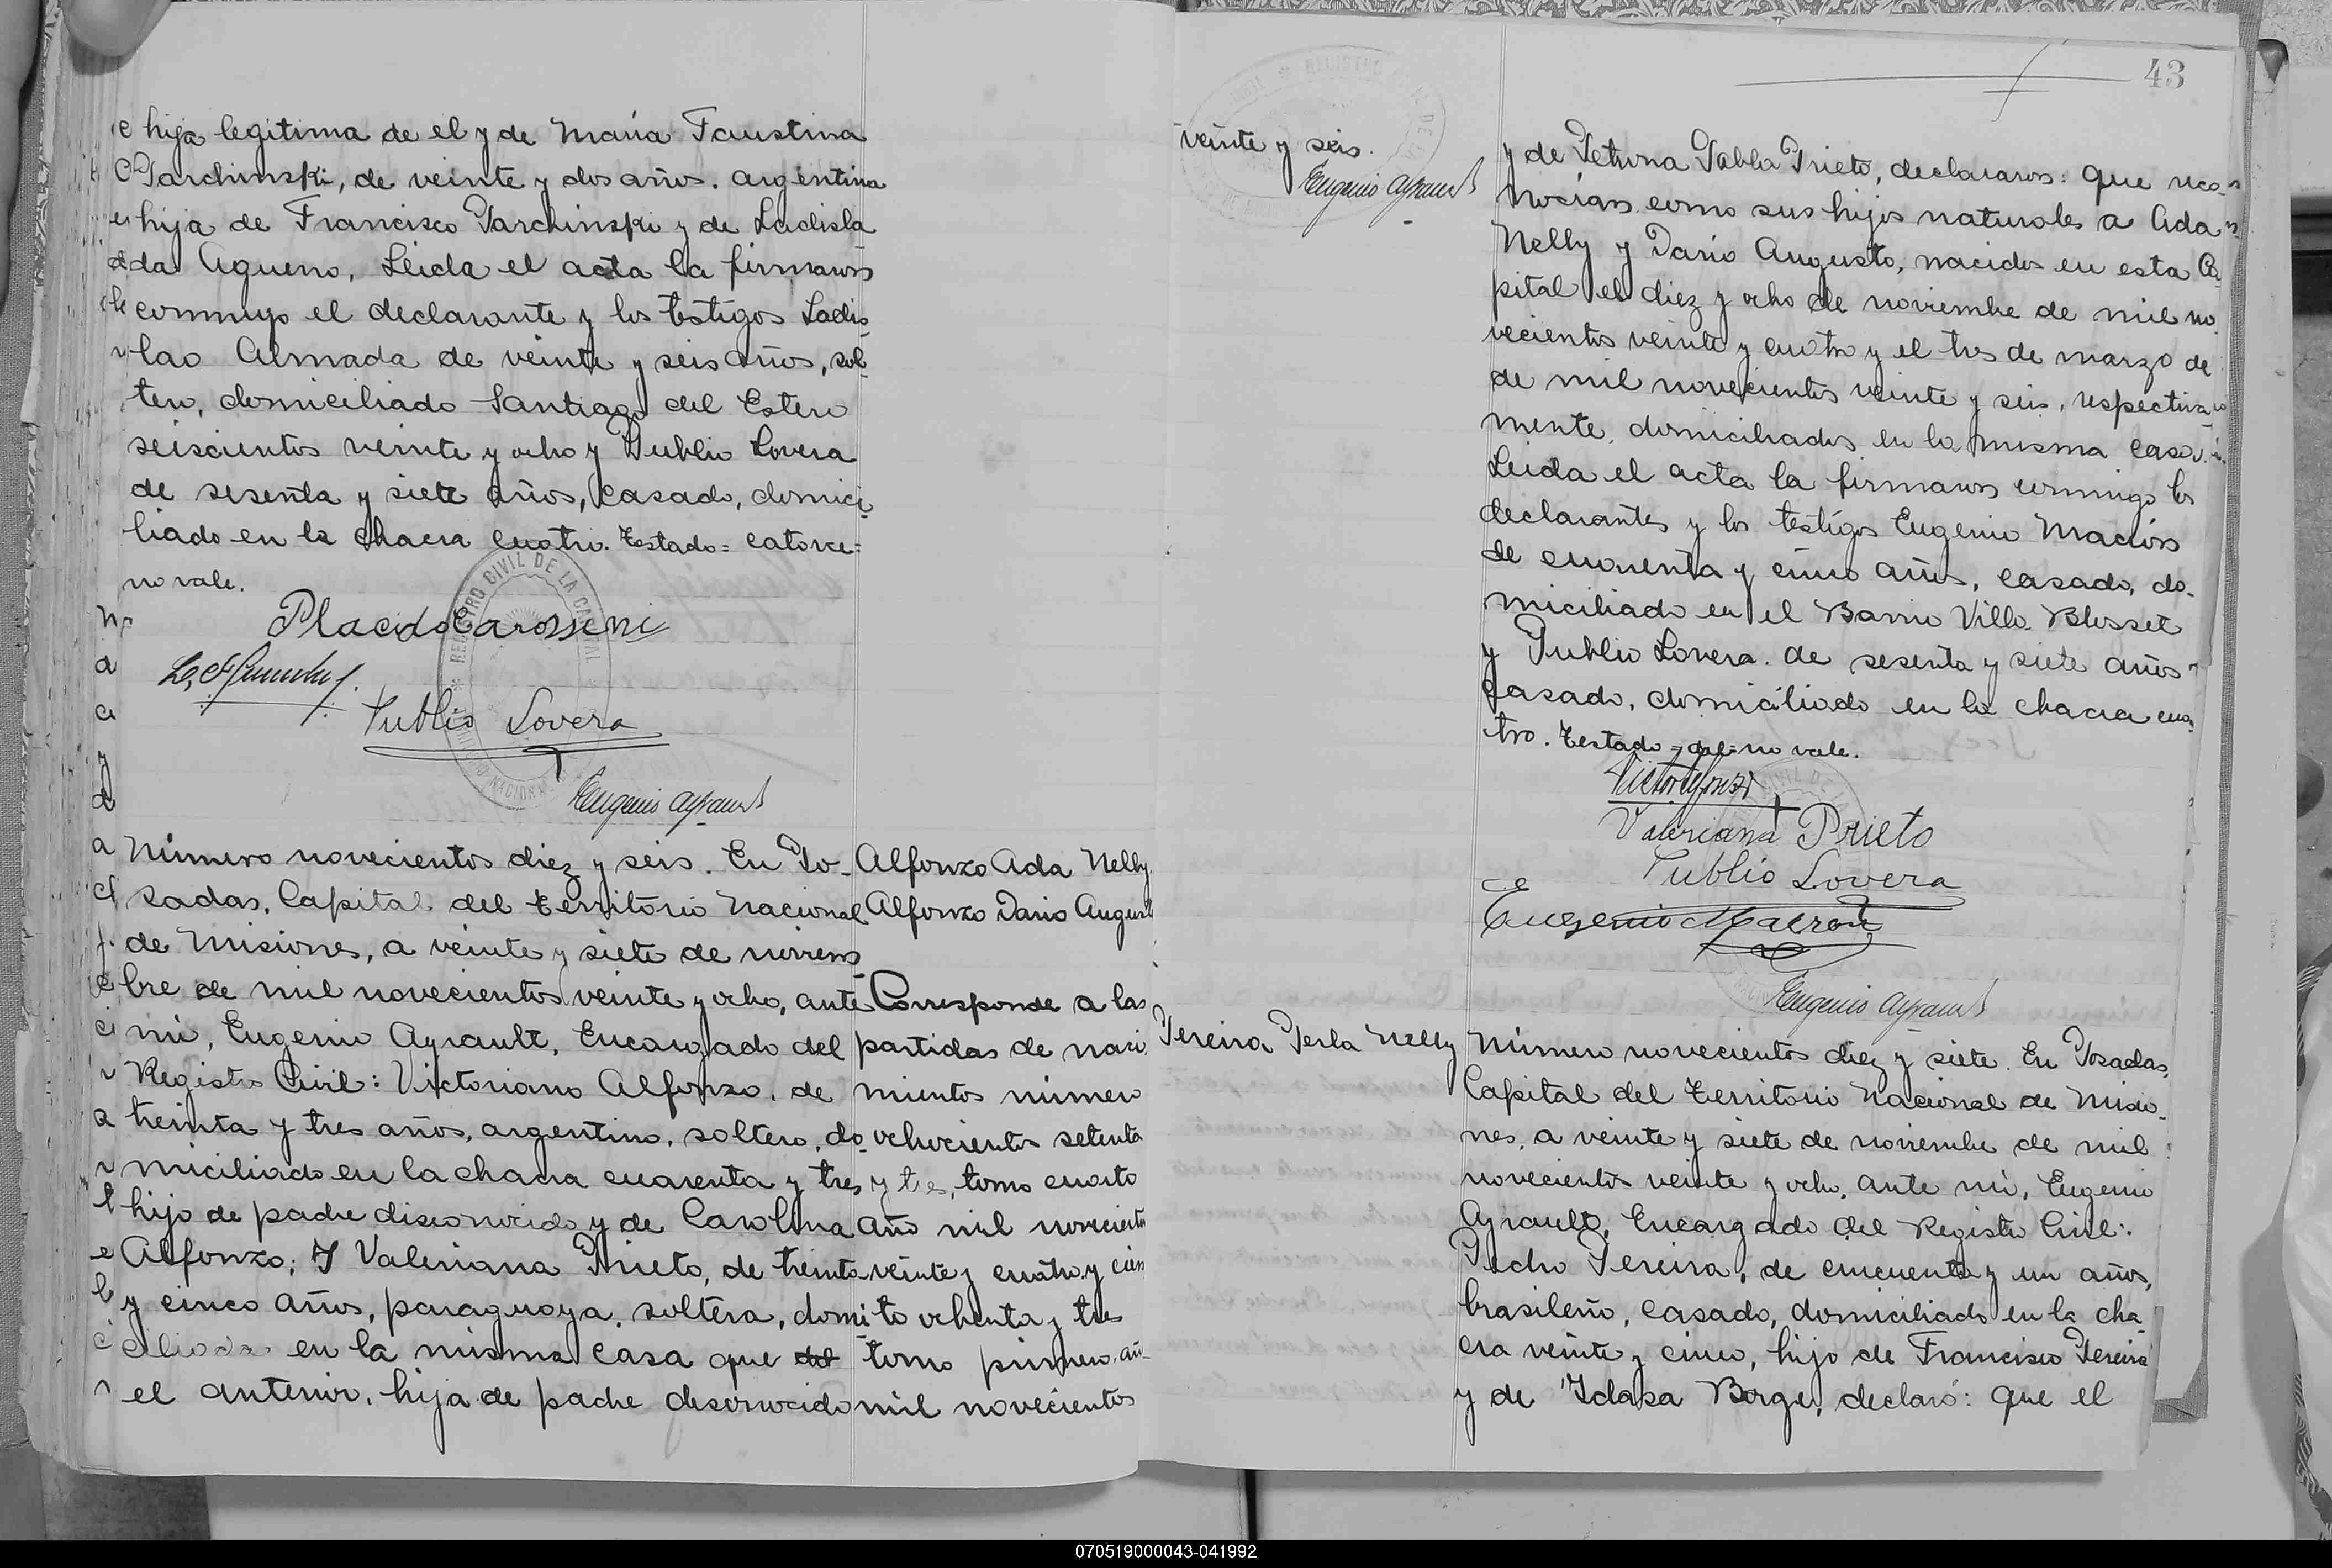 hija legitima de el y de María Faustina
Parchinski, de veinte y dos años. argentina
hija de Francisco Parchinski y de Ladisla
da Aguero, Leida el acta la firmaron
conmigo el declarante y los testigos Ladis-
lao Almada de veinte y seis años, sol-
tero, domiciliado Santiago del Estero
seiscientos veinte y ocho y Publio Lovera
de sesenta y siete años, casado, domici-
liado en la chacra cuatro. Testado = catorce =
no vale.
Placido Carosseni
Publio Lovera
Eugenio Ayrault
Número novecientos diez y seis. En Po-
sadas, Capital del Territorio Nacional
de Misiones, a veinte y siete de noviem-
bre de mil novecientos veinte y ocho, ante
mí, Eugenio Ayrault, Encargado del
Registro Civil: Victoriano Alfonzo, de
treinta y tres años, argentino, soltero, do-
miciliado en la chacra cuarenta y tres
hijo de padre disconocido y de Carolina
Alfonzo; Y Valeriana Prieto, de treinta
y cinco años, paraguaya, soltera, domi-
ciliada en la misma casa que del
el anterior, hija de padre desconocido
Alfonzo Ada Nelly
Alfonzo Dario August
Corresponde a las
partidas de naci
mientos número
ochocientos setenta
y tres, tomo cuarto
año mil novecientos
veinte y cuatro y cien
to ochenta y tres
tomo primero, añ-
mil novecientos
43
veinte y seis.
Eugenio Ayrault
y de Petrona Pabla Prieto, declararon: que reco-
nocían como sus hijos naturales a Ada
Nelly y Dario Augusto, nacidos en esta Ca
pital el diez y ocho de noviembre de mil no
vecientos veinte y cuatro y el tres de marzo de
de mil novecientos veinte y seis, respectiva-
mente, domiciliados en la misma casa.
Leida el acta la firmaron conmigo los
declarantes y los testigos Eugenio Macrón
de cuarenta y cinco años, casado, do-
miciliado en el Barrio Villa Blosset
y Publio Lovera. de sesenta y siete años
casado, domiciliado en la chacra cua
tro. Testado = del = no vale.
Valeriana Prieto
Publio Lovera
Eugenio Macron
Eugenio Ayrault
Pereira Perla Nelly
Número novecientos diez y siete. En Posadas,
Capital del Territorio Nacional de Misio-
nes, a veinte y siete de noviembre de mil
novecientos veinte y ocho, ante mí, Eugenio
Ayrault, Encargado del Registro Civil:
Pedro Pereira, de cincuenta y un años,
brasileño, casado, domiciliado en la cha-
cra veinte y cinco, hijo de Francisco Pereira
y de Idasa Borges, declaró: que el
070519000043-041992